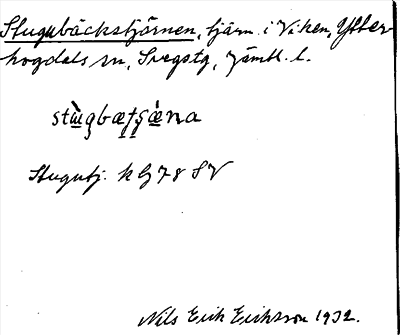 Stugubäckstjörnen, tjärn i Viken, Ytter-
hogdals sn, Svegstg, Jämtl. l.
Stugutj. k G 78 SV
Nils Erik Eriksson 1932.